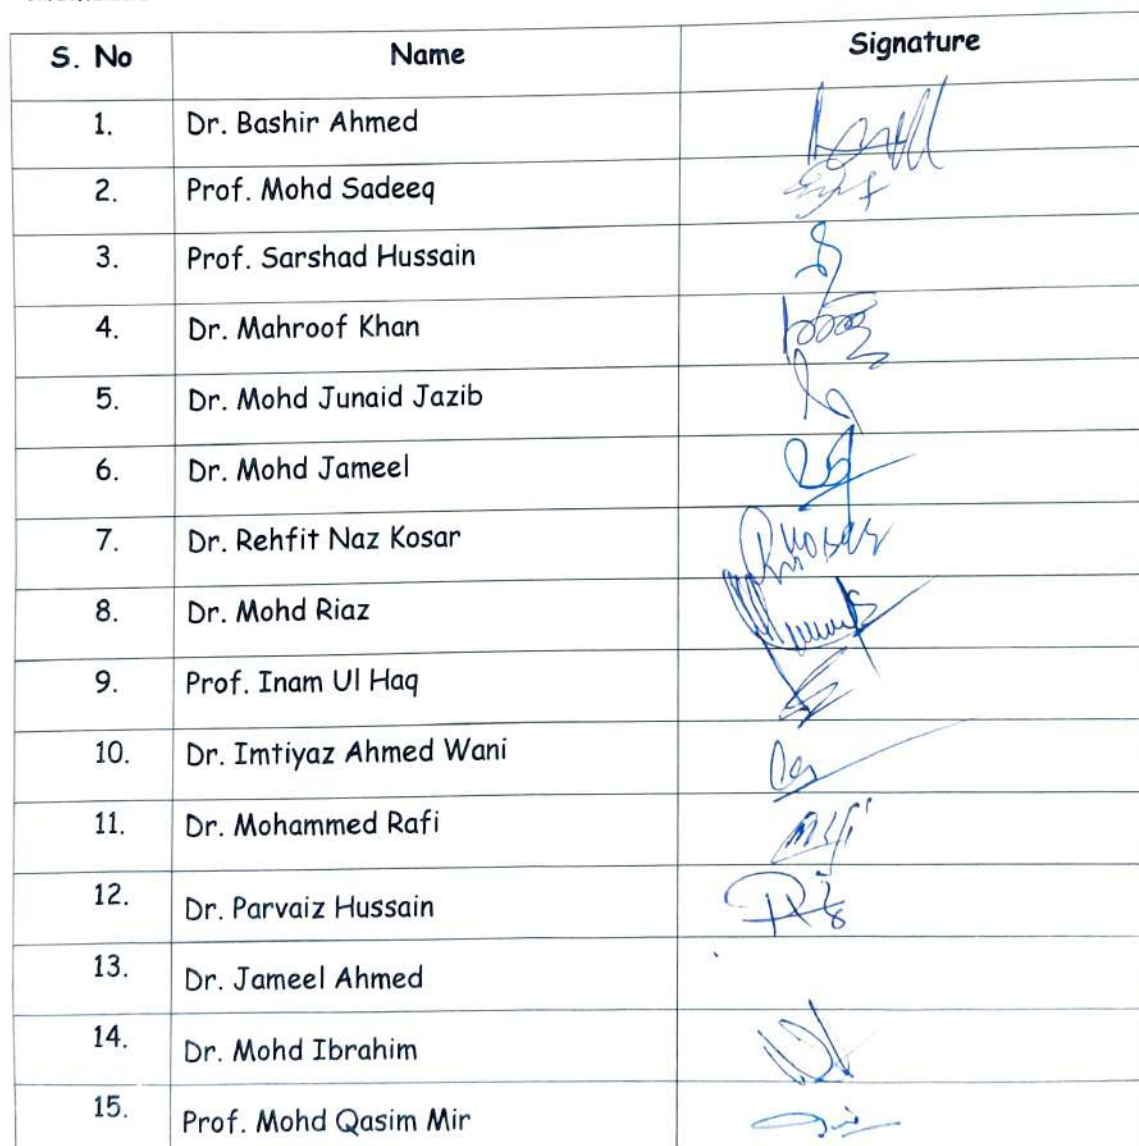 S. No Name Signature
1. Dr. Bashir Ahmed
2. Prof. Mohd Sadeeq
3. Prof. Sarshad Hussain
4. Dr. Mahroof Khan
5. Dr. Mohd Junaid Jazib
6. Dr. Mohd Jameel
7. Dr. Rehfit Naz Kosar
8. Dr. Mohd Riaz
9. Prof. Inam Ul Haq
10. Dr. Imtiyaz Ahmed Wani
11. Dr. Mohammed Rafi
12. Dr. Parvaiz Hussain
13. Dr. Jameel Ahmed
14. Dr. Mohd Ibrahim
15. Prof. Mohd Qasim Mir